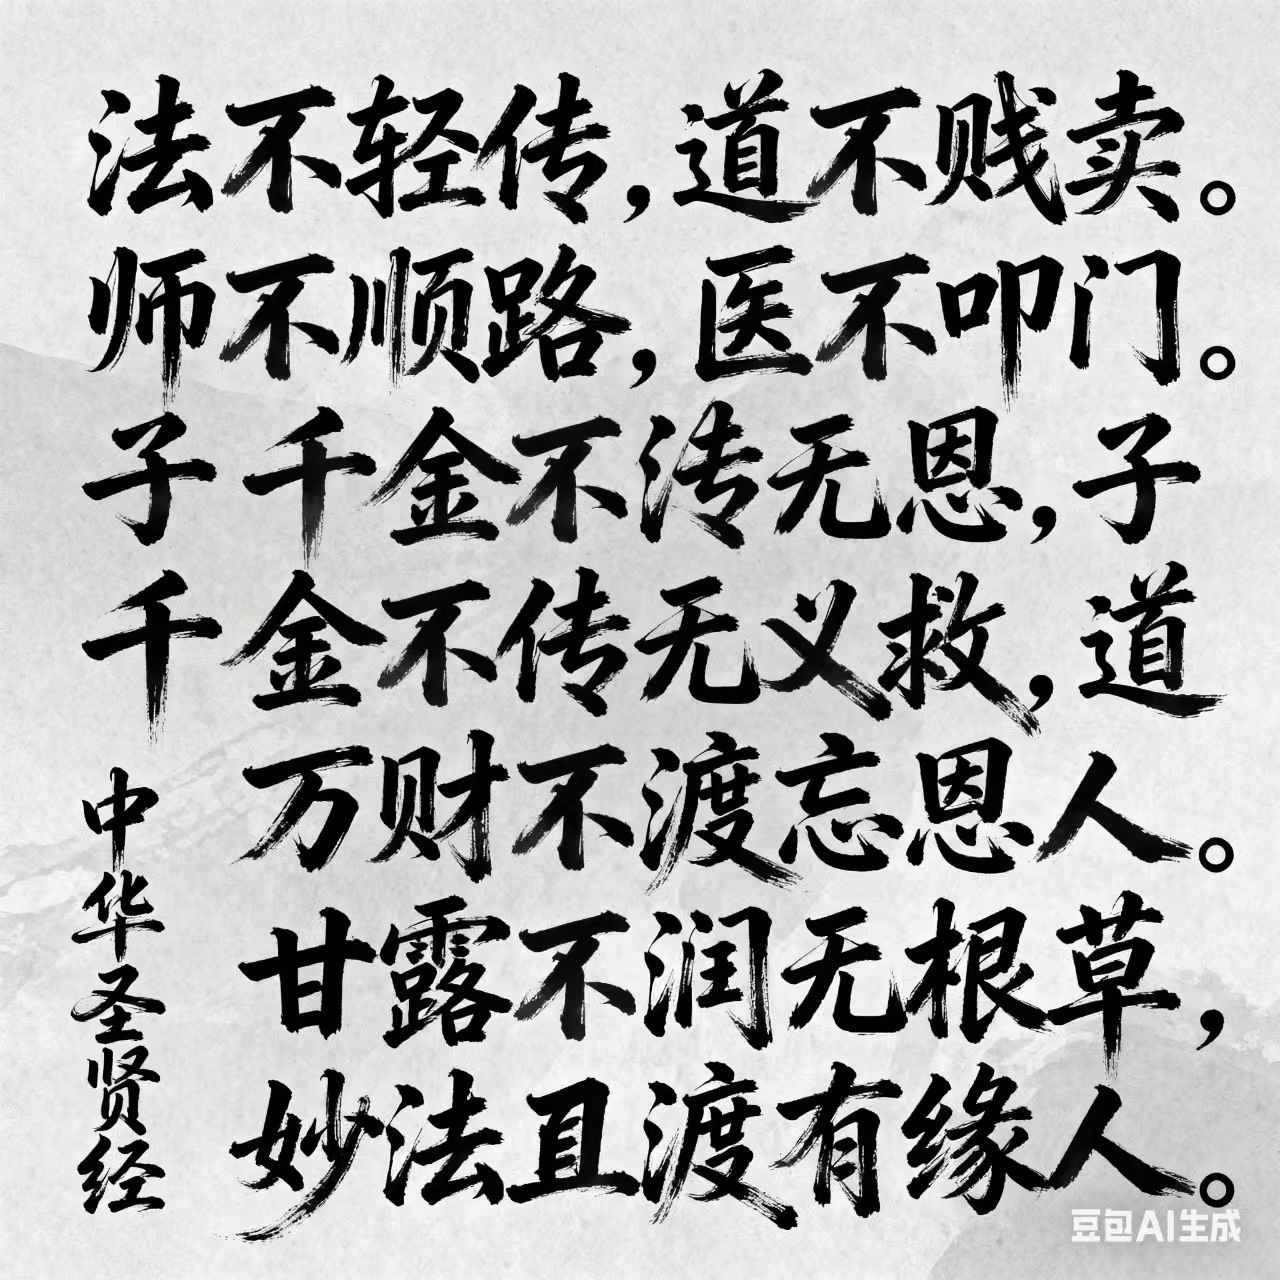 法不轻传，道不贱卖。
师不顺路，医不叩门。
子千金不传无恩，子
千金不传无义救，道
万财不渡忘恩人。
甘露不润无根草，
妙法且渡有缘人。
中华圣贤经
豆包AI生成